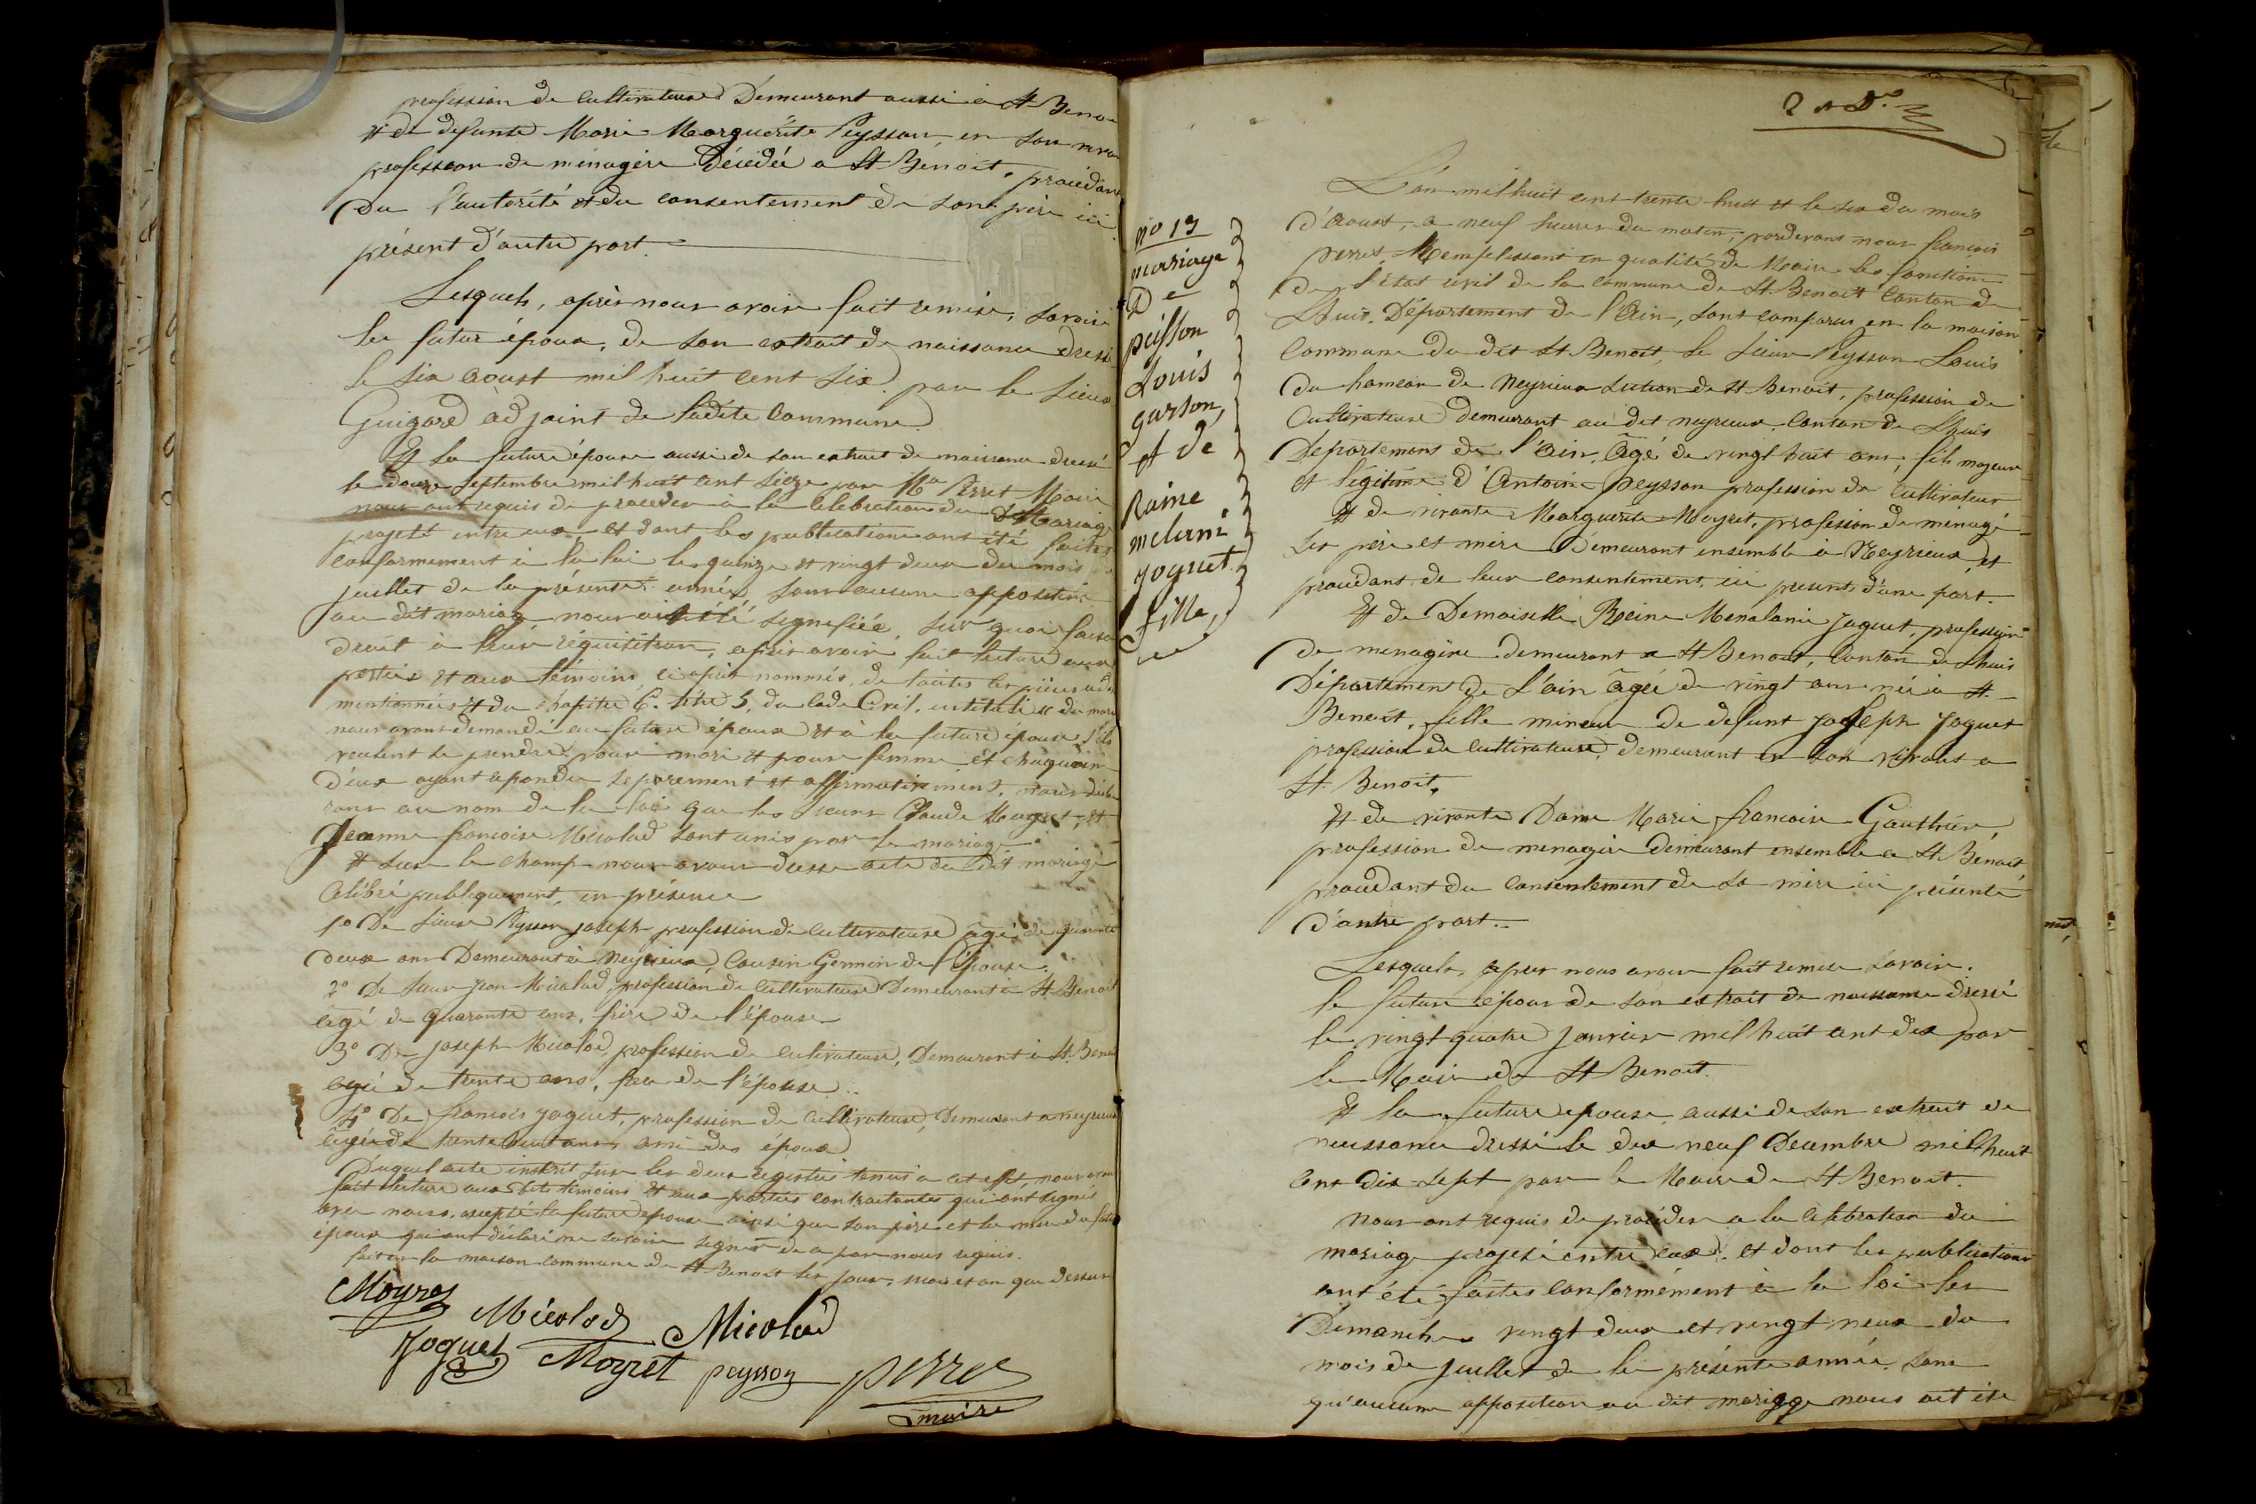 profession de cultivateur Demeurant aussi a St Benoi
et de defunte Marie Marguérite Peysson, en son viva
profession de ménagère Décédée a St Bénoit, procédan
du l'autorité et du consentement de son père ici
présent d'autre part.
Lesquels, après nous avoir fait remise, savoir
le futur époux, de son extrait de naissance dressé
le six aoust mil huit cent six par le Sieur
Guigard adjoint de ladite commune.
Et la future épouse aussi de son extrait de naissance dressé
le douze septembre mil huit cent seize par Mr Perret Maire
nous ont requis de proceder à la célébration du Mariage
projeté entre eux, et dont les publications ont été faites
conformement à la loi les quinze et vingt deux du mois
juillet de la présente année, sans aucune opposition
au dit mariage nous ait été signifiée, sur quoi faisa
droit à leur réquisitiion, après avoir fait lecture aux
parties et aux témoins ci après nommés, de toutes les pièces
mentionnées et du chapitre 6. titre 5. du Code Civil, intitulé du mari
nous avons demandé au futur époux et à la future épouse s'ils
veulent se prendre pour mari et pour femme et chaqu'un
d'eux ayant repondu séparement et affirmativement, nous décla
rons au nom de la loi que les sieurs Claude Moyret, et
Jeanne francoise Micolod sont unis par le mariage.
Et sur le champ nous avons dressé acte du dit mariage
célébré publiquement, en présence
1o De Sieur Peysson joseph profession de cultivateur âgé de quarante
deux ans Demeurant à Neyrieux, Cousin Germin de l'Epouse.
2o De Sieur jean Micolod, profession de cultivateur Demeurant a St Benoit
agé de quarante ans, frère de l'épouse
3o De joseph Micolod, profession de cultivateur, Demeurant à St. Benoi
agé de trente ans, frere de l'épouse
4o De francois joguet, profession de cultivateur, Demeurant a neyrieux
agé de trente ans ami des époux
Duquel acte inscrit sur les deux régistres tenus a cet effet, nous avon
fait lecture aux dits témoins et aux parties contractantes qui ont signés
avec nous, excepté la future épouse ainsi que son père et la mère du futur
époux qui ont déclaré ne savoir signer de ce par nous requis.
fait en la maison commune de St Benoit les jour, mois et an que dessus
Moyret
Micolod Micolod
Joguet Moyret peysson perret
maire

No 13
mariage
De
peisson
Louis
garson,
et de
Raine
melani
joguet
fille,

L'an mil huit cent trente huit et le six du mois
d'aoust, a neuf heures du matin, pardevant nous françois
perret, Remplissant en qualité de Maire les fonctions
de l'état civil de la commune de St. Benoit Canton de
Lhuis. Département de l'Ain, sont comparus en la maison
Commune du dit St Benoit, le Sieur Peysson Louis
du hameau de Neyrieux section de St Benoit, profession de
Cultivateur demeurant au dit neyrieux. Canton de Lhuis
Departement de l'ain, âgé de vingt huit ans, fils majeur
et légitime d'Antoine Peysson profession de cultivateur
et de vivante Marguerite Moyret, profession de ménagé
ses père et mère Demeurant ensemble à Neyrieux, et
procédant de leur consentement, ici présents, d'une part.
Et de Demoiselle Reine Menalanie joguet, profession
de menagère demeurant a St Benoit, Canton de Lhuis
Département de l'ain âgée de vingt ans née à St.
Benoit, fille mineur de defunt joseph joguet
profession de cultivateur, demeurant en son vivant a
St Benoit.
Et de vivante Dame Marie francoise Gauthier,
profession de menagère Demeurant ensemble a St Bénoit
procédant du consentement de sa mère ici présente
d'autre part.
Lesquels, apres nous avoir fait remise savoir.
le futur époux de son extrait de naissance dressé
le vingt quatre janvier mil huit cent dix par
le Maire de St Benoit.
Et la future epouse, aussi de son extrait de
naissance dressé le dix neuf Decembre mil huit
cent dix sept par le Maire de St Benoit.
Nous ont requis de procéder a la célébration du
mariage projeté entre eux. et dont les publications
ont été faites conformément à la loi les
Dimanches vingt deux et vingt neux du
mois de juillet de la présente année. sans
qu'aucune opposition au dit mariage nous ait été